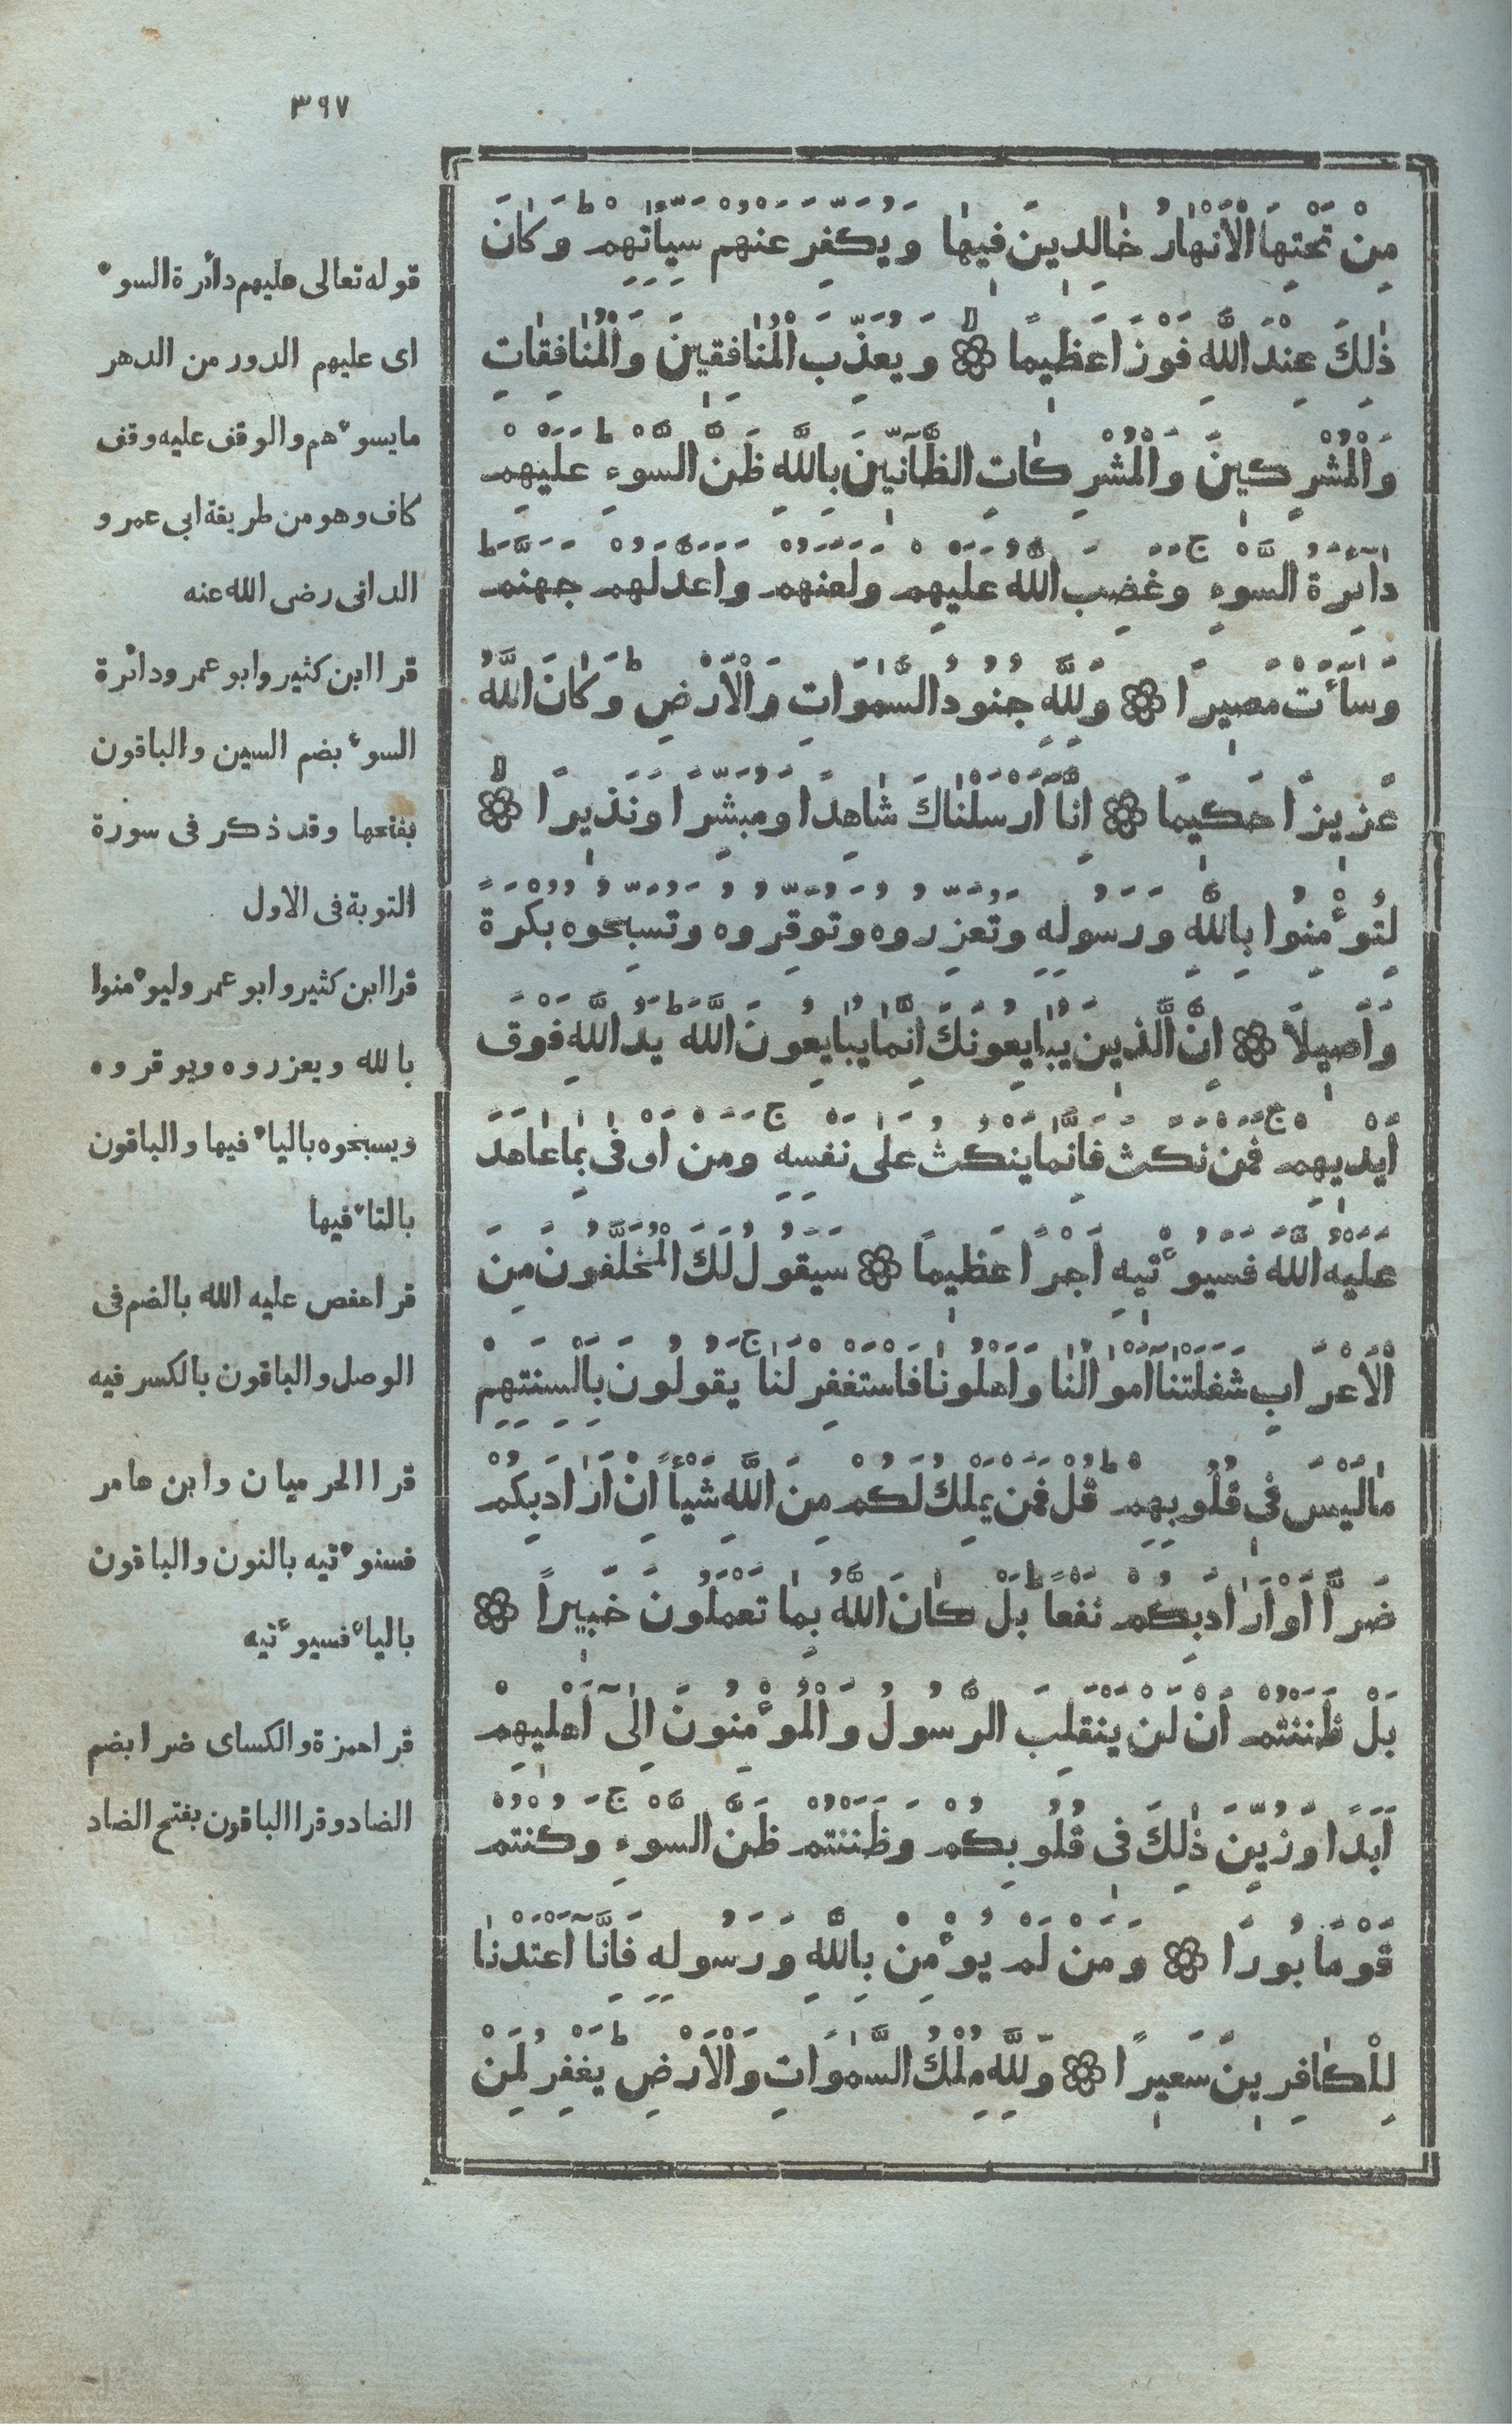 ٣٩٧
مِنْ تَحْتِهَا الْاَنْهٰارُ خٰالِدِينَ فِيهٰا وَيُكَفِّرَ عَنْهُمْ سَيِّـَٔاتِهِمْ ط وَكٰانَ
ذٰلِكَ عِنْدَ اللّٰهِ فَوْزًا عَظِيمًا ۞ لا وَيُعَذِّبَ الْمُنٰافِقِينَ وَالْمُنٰافِقٰاتِ
وَالْمُشْرِكِينَ وَالْمُشْرِكٰاتِ الظَّآنِّينَ بِاللّٰهِ ظَنَّ السَّوْءِ ط عَلَيْهِمْ
دٰٓائِرَةُ السَّوْءِ ج وَغَضِبَ اللّٰهُ عَلَيْهِمْ وَلَعَنَهُمْ وَاَعَدَّ لَهُمْ جَهَنَّمَ ط
وَسٰٓاءَتْ مَصِيرًا ۞ وَلِلّٰهِ جُنُودُ السَّمٰوَاتِ وَالْاَرْضِ ط وَكٰانَ اللّٰهُ
عَزِيزًا حَكِيمًا ۞ اِنَّٓا اَرْسَلْنٰاكَ شٰاهِدًا وَمُبَشِّرًا وَنَذِيرًا ۞ لا
لِتُوءْمِنُوا بِاللّٰهِ وَرَسُولِهِ وَتُعَزِّرُوهُ وَتُوَقِّرُوهُ وَتُسَبِّحُوهُ بُكْرَةً
وَاَصِيلاً ۞ اِنَّ الَّذِينَ يُبٰايِعُونَكَ اِنَّمٰا يُبٰايِعُونَ اللّٰهَ ط يَدُ اللّٰهِ فَوْقَ
اَيْدِيهِمْ ج فَمَنْ نَكَثَ فَاِنَّمٰا يَنْكُثُ عَلٰى نَفْسِهِ ج وَمَنْ اَوْفٰى بِمٰا عٰاهَدَ
عَلَيْهُ اللّٰهَ فَسَيُوءْتِيهِ اَجْرًا عَظِيمًا ۞ سَيَقُولُ لَكَ الْمُخَلَّفُونَ مِنَ
الْاَعْرَابِ شَغَلَتْنٰٓا اَمْوٰالُنٰا وَاَهْلُونٰا فَاسْتَغْفِرْ لَنٰا ج يَقُولُونَ بِاَلْسِنَتِهِمْ
مٰا لَيْسَ فِى قُلُوبِهِمْ ط قُلْ فَمَنْ يَمْلِكُ لَكُمْ مِنَ اللّٰهِ شَيْـًٔا اِنْ اَرٰادَ بِكُمْ
ضَرًّا اَوْ اَرٰادَ بِكُمْ نَفْعًا ط بَلْ كٰانَ اللّٰهُ بِمٰا تَعْمَلُونَ خَبِيرًا ۞
بَلْ ظَنَنْتُمْ اَنْ لَنْ يَنْقَلِبَ الرَّسُولُ وَالْمُوءْمِنُونَ اِلٰٓى اَهْلِيهِمْ
اَبَدًا وَزُيِّنَ ذٰلِكَ فِى قُلُوبِكُمْ وَظَنَنْتُمْ ظَنَّ السَّوْءِ ج وَكُنْتُمْ
قَوْمًا بُورًا ۞ وَمَنْ لَمْ يُوءْمِنْ بِاللّٰهِ وَرَسُولِهِ فَاِنَّٓا اَعْتَدْنٰا
لِلْكٰافِرِينَ سَعِيرًا ۞ وَلِلّٰهِ مُلْكُ السَّمٰوَاتِ وَالْاَرْضِ ط يَغْفِرُ لِمَنْ
قوله تعالى عليهم دائرة السوء
اى عليهم الدور من الدهر
ما يسوءهم والوقف عليه وقف
كاف وهو من طريقة ابى عمرو
الدانى رضى الله عنه
قرا ابن كثير وابو عمرو دائرة
السوء بضم السين والباقون
بفتحها وقد ذكر فى سورة
التوبة فى الاول
قرا ابن كثير وابو عمرو ليوءمنوا
بالله ويعزروه ويوقروه
ويسبحوه بالياء فيها والباقون
بالتاء فيها
قرا حفص عليه الله بالضم فى
الوصل والباقون بالكسر فيه
قرا الحرميان وابن عامر
فسنوءتيه بالنون والباقون
بالياء فسيوءتيه
قرا حمزة والكساى ضرا بضم
الضاد وقرا الباقون بفتح الضاد